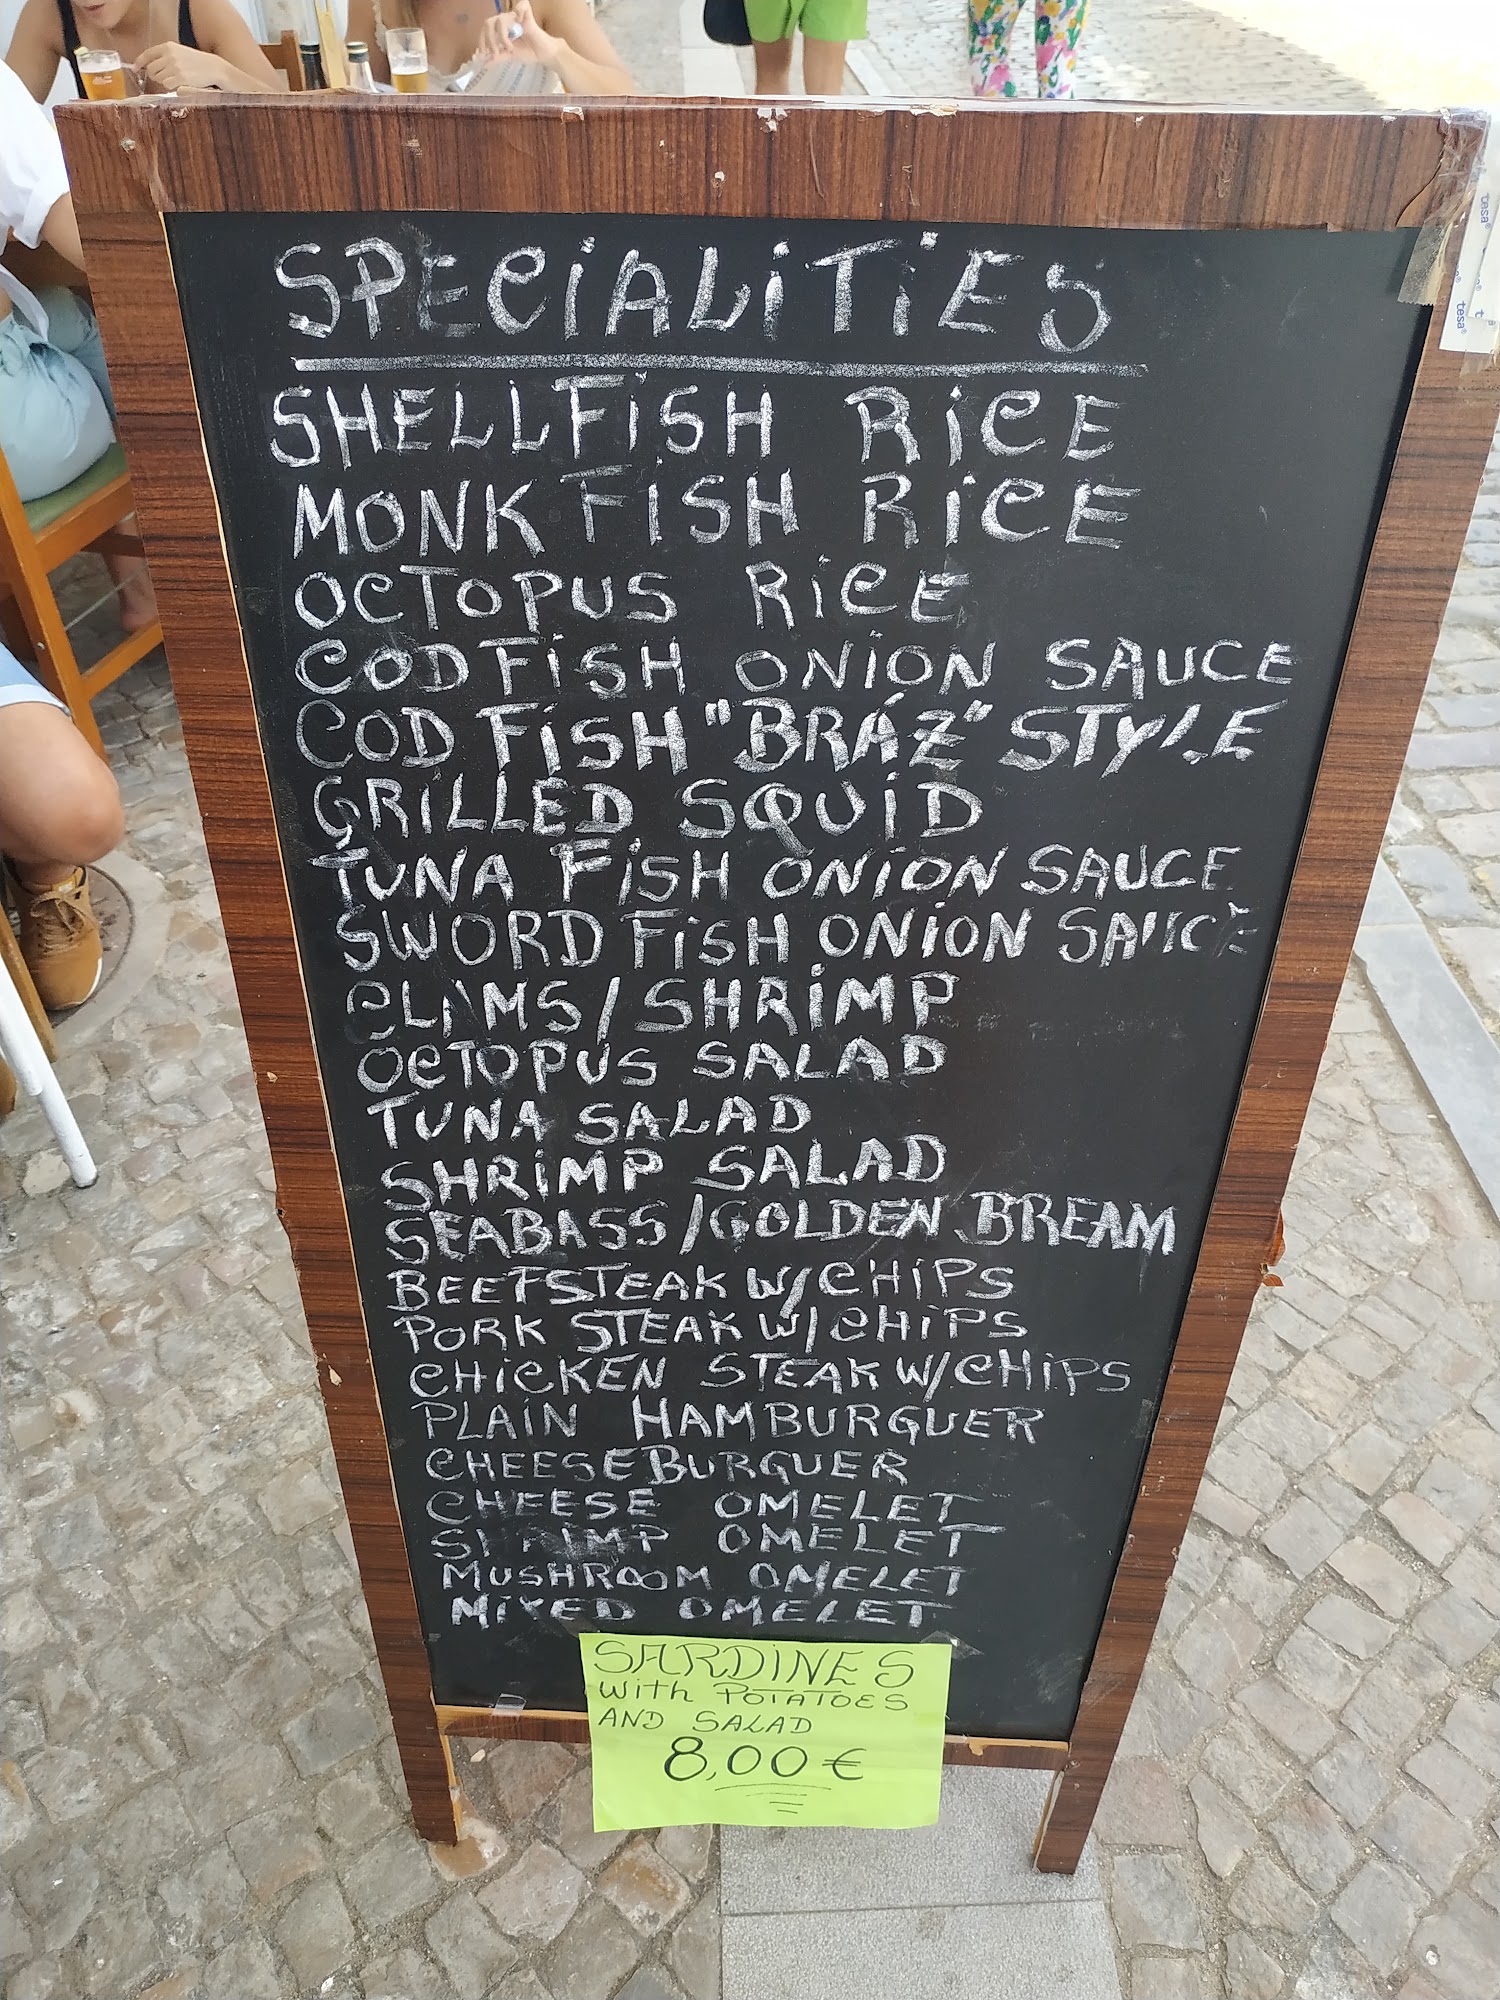 SPECIALITIES
SHELLFISH RICE
MONKFISH RICE
OCTOPUS RICE
CODFISH ONION SAUCE
CODFISH "BRÁZ" STYLE
GRILLED SQUID
TUNA FISH ONION SAUCE
SWORD FISH ONION SAUCE
CLAMS/SHRIMP
OCTOPUS SALAD
TUNA SALAD
SHRIMP SALAD
SEABASS/GOLDEN BREAM
BEEFSTEAK W/CHIPS
PORK STEAK W/CHIPS
CHICKEN STEAK W/CHIPS
PLAIN HAMBURGUER
CHEESEBURGUER
CHEESE OMELET
SHRIMP OMELET
MUSHROOM OMELET
MIXED OMELET
SARDINES
WITH POTATOES
AND SALAD
8,00 €
tesa®
tesa®